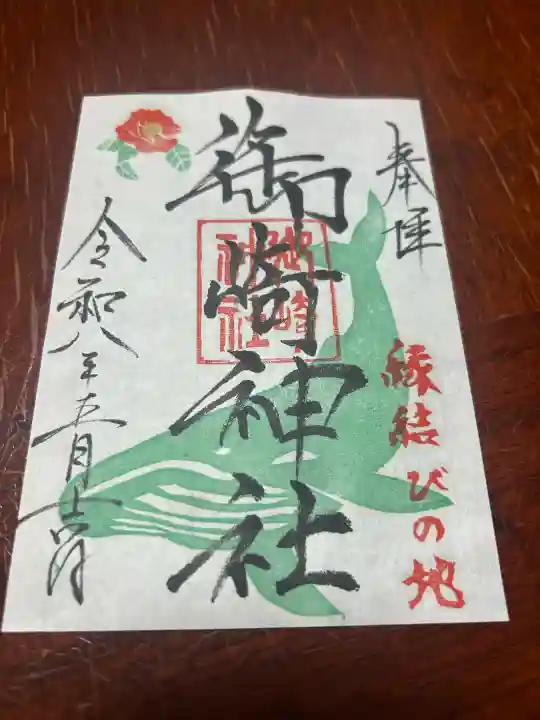 奉拝
縁結びの地
御崎神社
御崎
神社
令和八年五月十六日